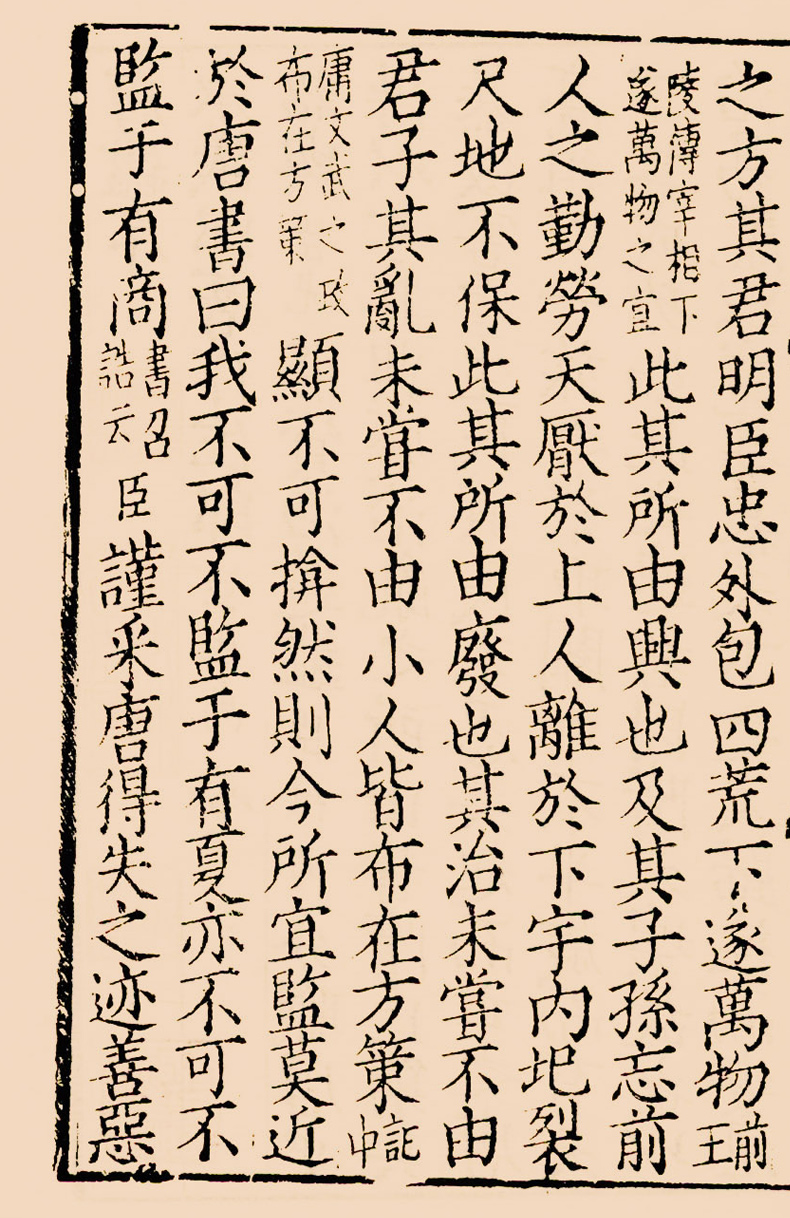 之方其君明臣忠外包四荒下遂萬物前王
陵傳宰相下遂萬物之宜此其所由興也及其子孫忘前
人之勤勞天厭於上人離於下宇内圮裂
尺地不保此其所由廢也其治未嘗不由
君子其亂未嘗不由小人皆布在方策記中
庸文武之政布在方策顯不可揜然則今所宜監莫近
於唐書曰我不可不監于有夏亦不可不
監于有商書召誥云臣謹采唐得失之迹善惡